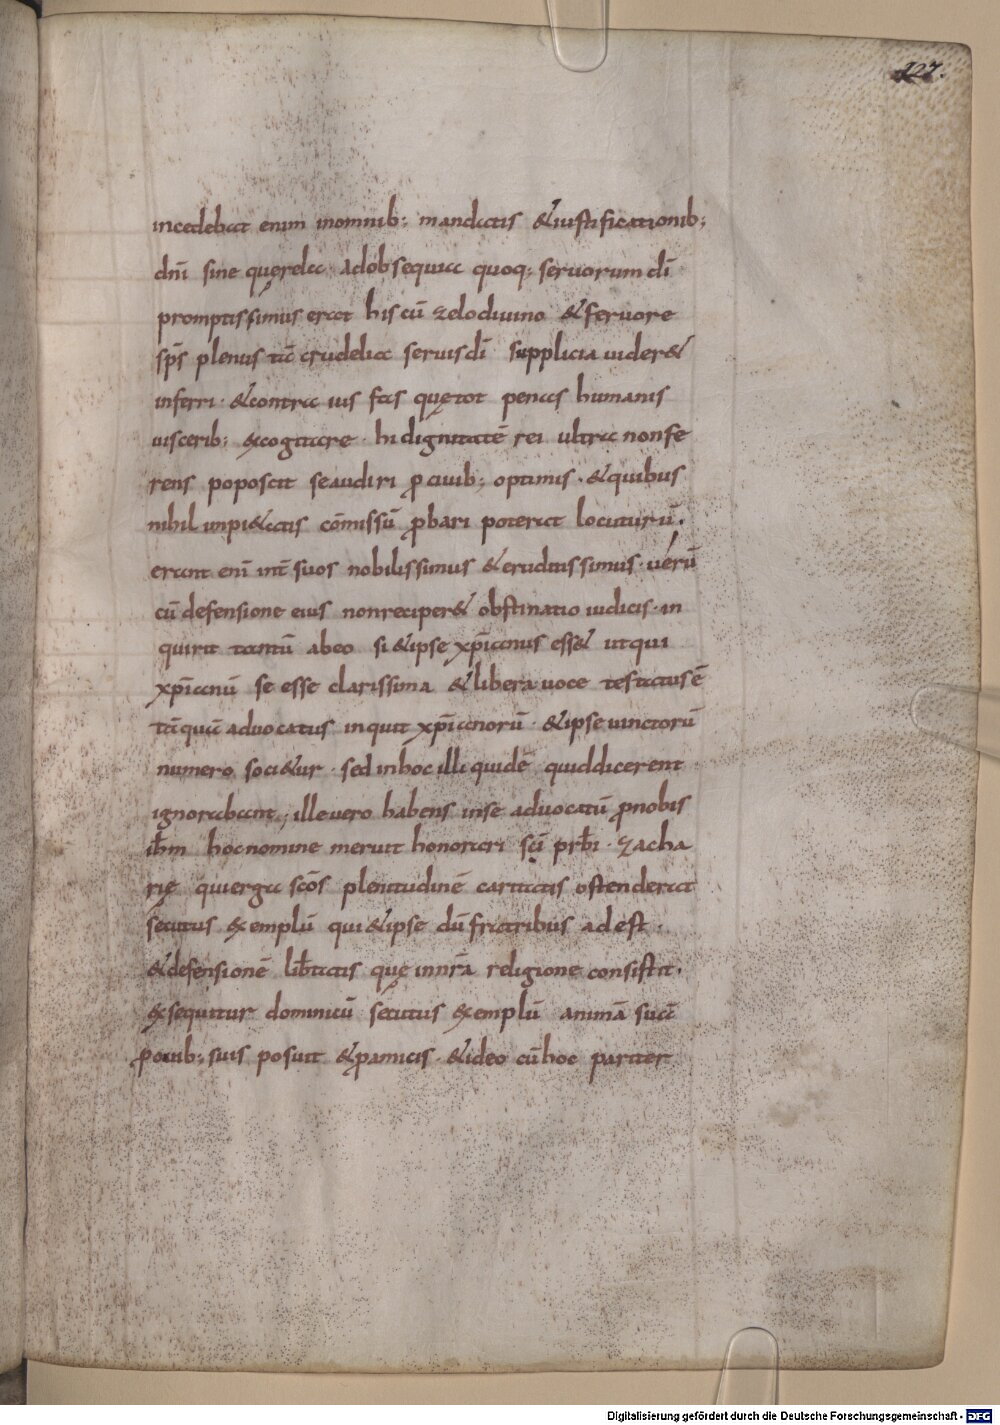 127.
incedebat enim inomnib; mandatis &iustificationib;
dnī sine querela Adobsequia quoq; seruorum dī
promptissimus erat hiscū zelodiuino &feruore
sp̄s plenus tā crudelia seruisdī supplicia uider&
inferri · &contra ius fas quętot penas humanis
uiscerib; excogitare · hi dignitatē rei ultra nonfe
rens poposcit seaudiri ꝓciuib; optimis · &quibus
nihil impi&atis cōmissū ꝓbari poterat locuturū.
erant enī int̄ suos nobilissimus &eruditissimus · uerū
cū defensione eius nonreciper& obstinatio iudicis · in
quirit tantū abeo si &ipse xp̄ianus ess& utqui
xp̄ianū se esse clarissima &libera uoce testatusē
tāquā aduocatus inquit xp̄ianorū · &ipse uinctorū
numero soci&ur · sed inhoc illi quidē quiddicerent
ignorabant; illeuero habens inse aduocatū ꝓnobis
ih̄m hocnomine meruit honorari sc̄i prb̄i · zacha
rię quierga sc̄ōs plenitudinē caritatis ostenderat
secutus exemplū qui &ipse dū fratribus adest ·
&defensionē lib̄tatis quę innr̄a religione consistit.
exsequitur dominicū secutus exemplū animā suā
ꝓouib; suis posuit &ꝓamicis · &ideo cūhoc pariter
Digitalisierung gefördert durch die Deutsche Forschungsgemeinschaft - DFG